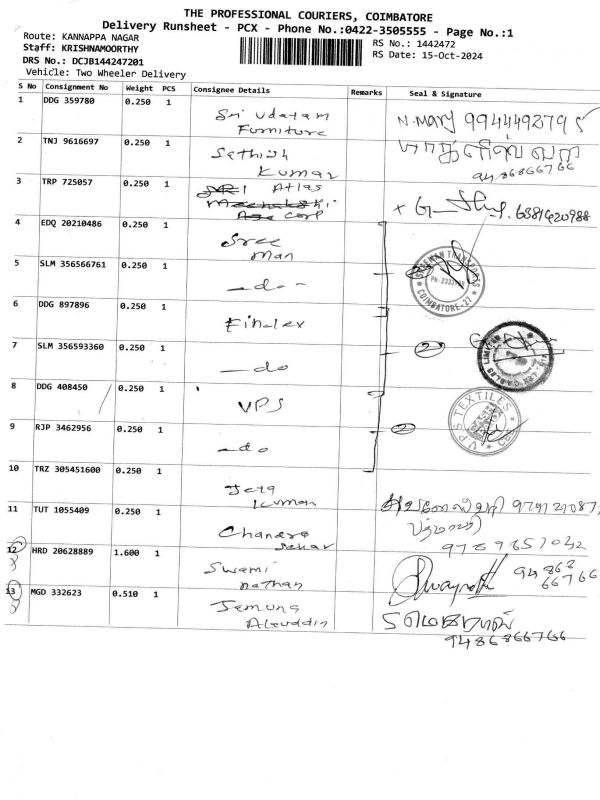 THE PROFESSIONAL COURIERS, COIMBATORE
Delivery Runsheet - PCX - Phone No.:0422-3505555 - Page No.:1
Route: KANNAPPA NAGAR
Staff: KRISHNAMOORTHY
DRS No.: DCJB144247201
Vehicle: Two Wheeler Delivery
RS No.: 1442472
RS Date: 15-Oct-2024
S No Consignment No Weight PCS Consignee Details Remarks Seal & Signature
1 DDG 359780 0.250 1 Sri Udayam N. Mary
Furniture
2 TNJ 9616697 0.250 1 Sathish
Kumar 9486866766
3 TRP 725057 0.250 1 Atlas
Corp
4 EDQ 20210486 0.250 1 Sree
Man
5 SLM 356566761 0.250 1 —do—
COIMBATORE-27
6 DDG 897896 0.250 1 Finolex
7 SLM 356593360 0.250 1 —do 2
LIMITED
8 DDG 408450 0.250 1 VPS
V P S TEXTILES
9 RJP 3462956 0.250 1 —do 2
10 TRZ 305451600 0.250 1 Jeya
Kumar
11 TUT 1055409 0.250 1 Chandra
Sekar 9789651042
12 HRD 20628889 1.600 1 Swami
nathan 94868
66766
13 MGD 332623 0.510 1 Jamuna
Alauddin
9486866766